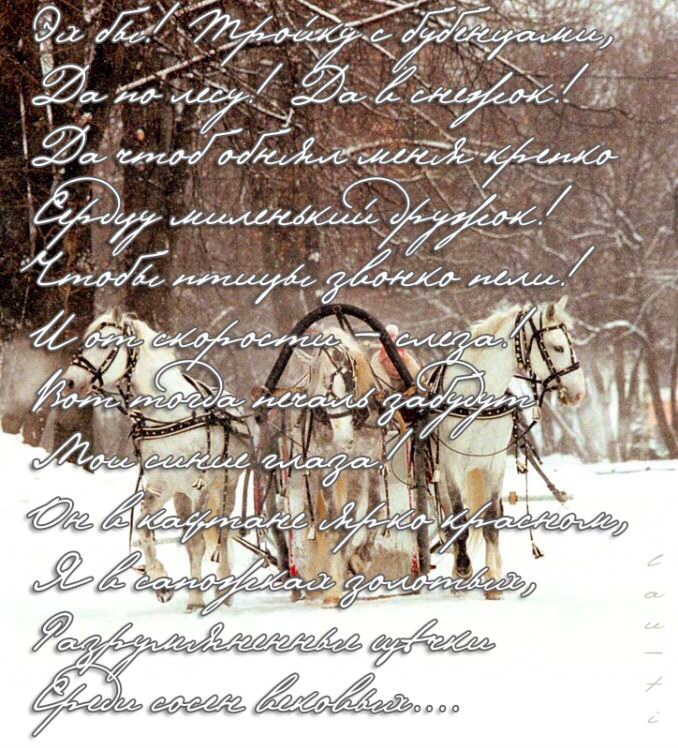 Эх бы! Тройку с бубенцами,
Да по лесу! Да в снежок!
Да чтоб обнял меня крепко
Сердцу миленький дружок!
Чтобы птицы звонко пели!
И от скорости – слеза!
Вот тогда печаль забудут
Мои синие глаза!
Он в кафтане ярко красном,
Я в сапожках золотых,
Разрумяненные щёчки
Среди сосен вековых....